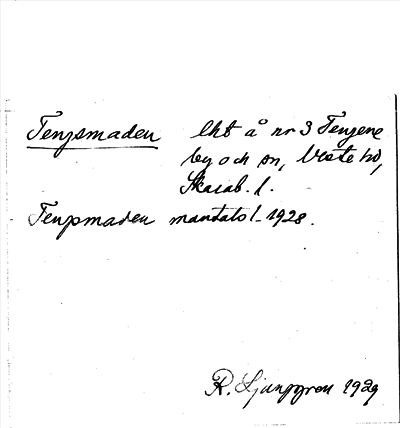 Tengsmaden lht å nr 3 Tengene
by och sn, Viste hd,
Skarab. l.
Tengsmaden mantalsl. 1928.
R. Ljunggren 1929